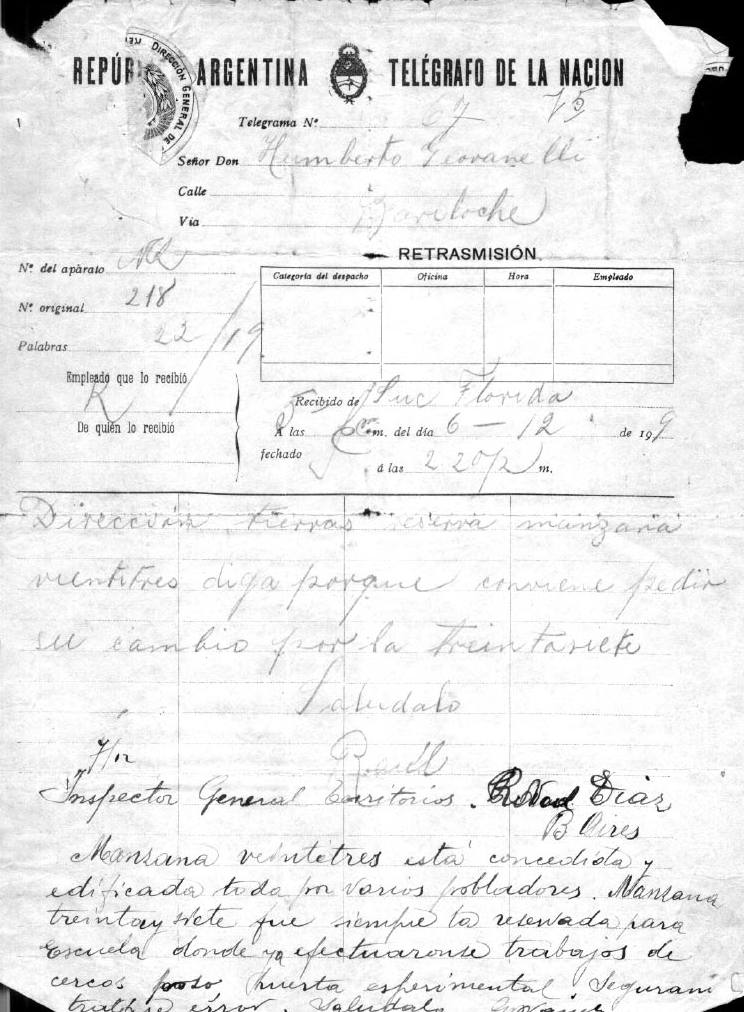 REPÚB ARGENTINA TELÉGRAFO DE LA NACION
DIRECCIÓN GENERAL DE
Telegrama Nº 67 V5
Señor Don Humberto Giovanelli
Calle
Via Bariloche
RETRASMISIÓN
Nº del apàrato
Categoría del despacho Oficina Hora Empleado
Nº original 218
Palabras 22/19
Empleado que lo recibió
R
De quién lo recibió
Recibido de Suc Florida
Á las m. del día 6 - 12 de 199
fechado á las 2 20 m.
Dirección tierras reserva manzana
vientitres diga porque conviene pedir
su cambio por la treintasiete
Saludalo
Raúl
7/12
Inspector General Territorios. Díaz
B Aires
Manzana veintetres está concedida y
edificada toda por varios pobladores. Manzana
treinta y siete fue siempre la reservada para
Escuela donde ya efectuaronse trabajos de
cercos poso huerta esperimental Seguram
error. Saludalo